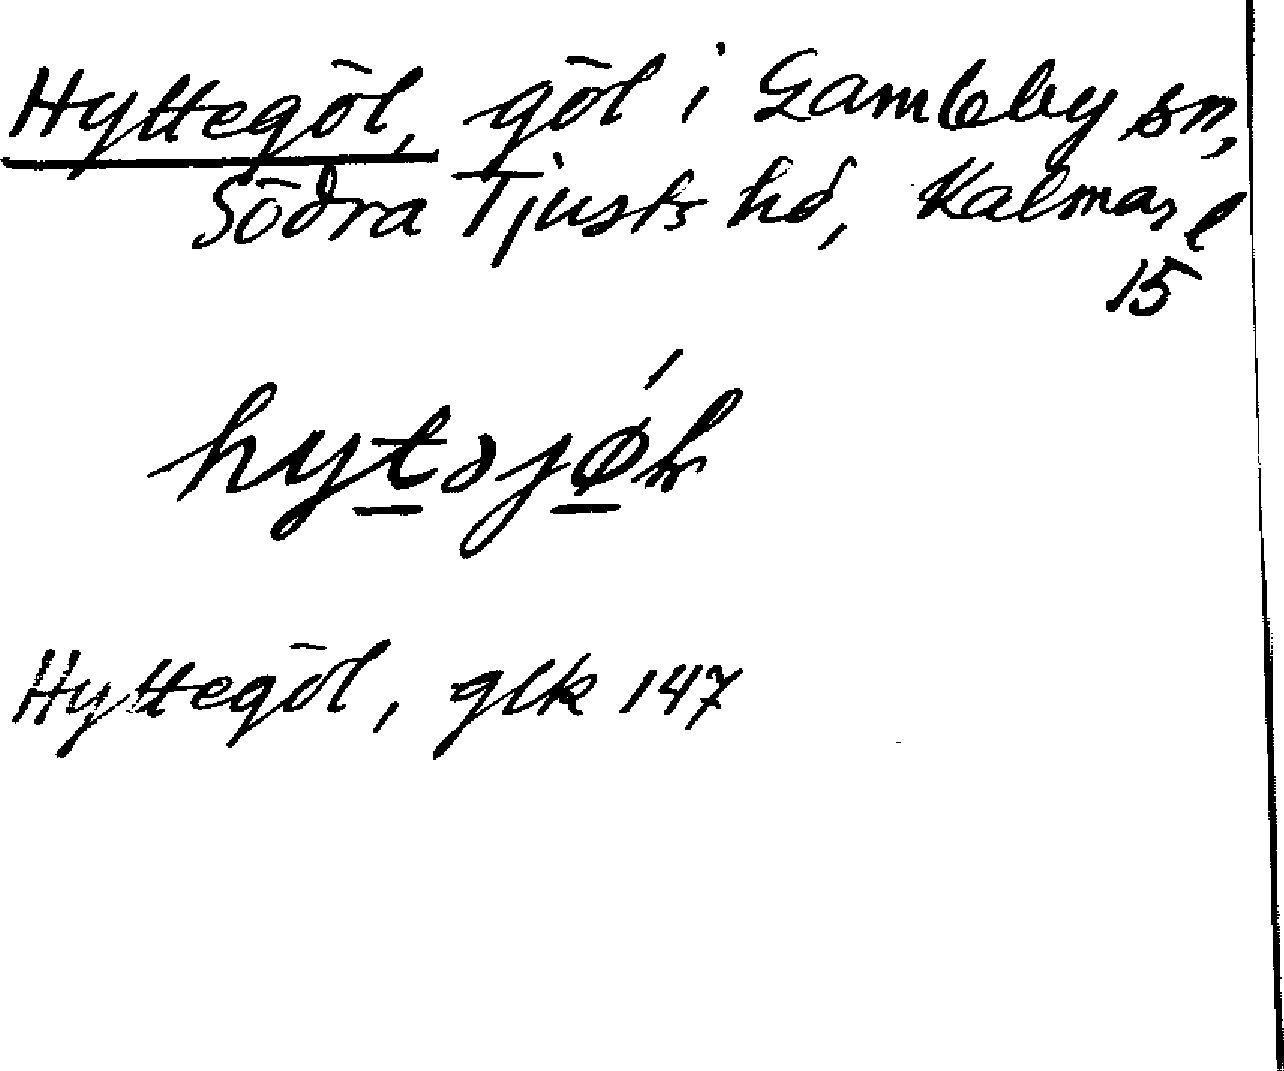 Hyttegöl, göl i Gamleby sn,
Södra Tjusts hd, Kalmar l
15
Hyttegöl, glk 147